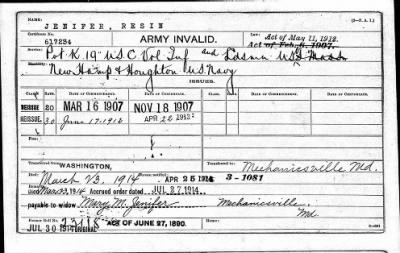 JENIFER, RESIN
Certificate No.
617234
ARMY INVALID.
Act of May 11, 1912
Act of Feb. 6, 1907.
Service:
Pvt. K. 19" U.S.C. Vol Inf and Ldsmn U.S.S.
New Hamp & Houghton U.S. Navy
ISSUES.
CLASS RATE DATE OF COMMENCEMENT. DATE OF CERTIFICATE. CLASS RATE DATE OF COMMENCEMENT. DATE OF CERTIFICATE.
REISSUE 20 MAR 16 1907 NOV 18 1907
REISSUE 30 June 17-1912
Transferred from
WASHINGTON,
Transferred to
Mechanicsville Md.
Died March 23, 1914 APR 25 1914 3-1081
Mar 23, 1914 Accrued order dated JUL 27 1914,
payable to widow Mary M. Jenifer Mechanicsville
Md
Former Roll No.
ACT OF JUNE 27, 1890.
JUL 30 1914